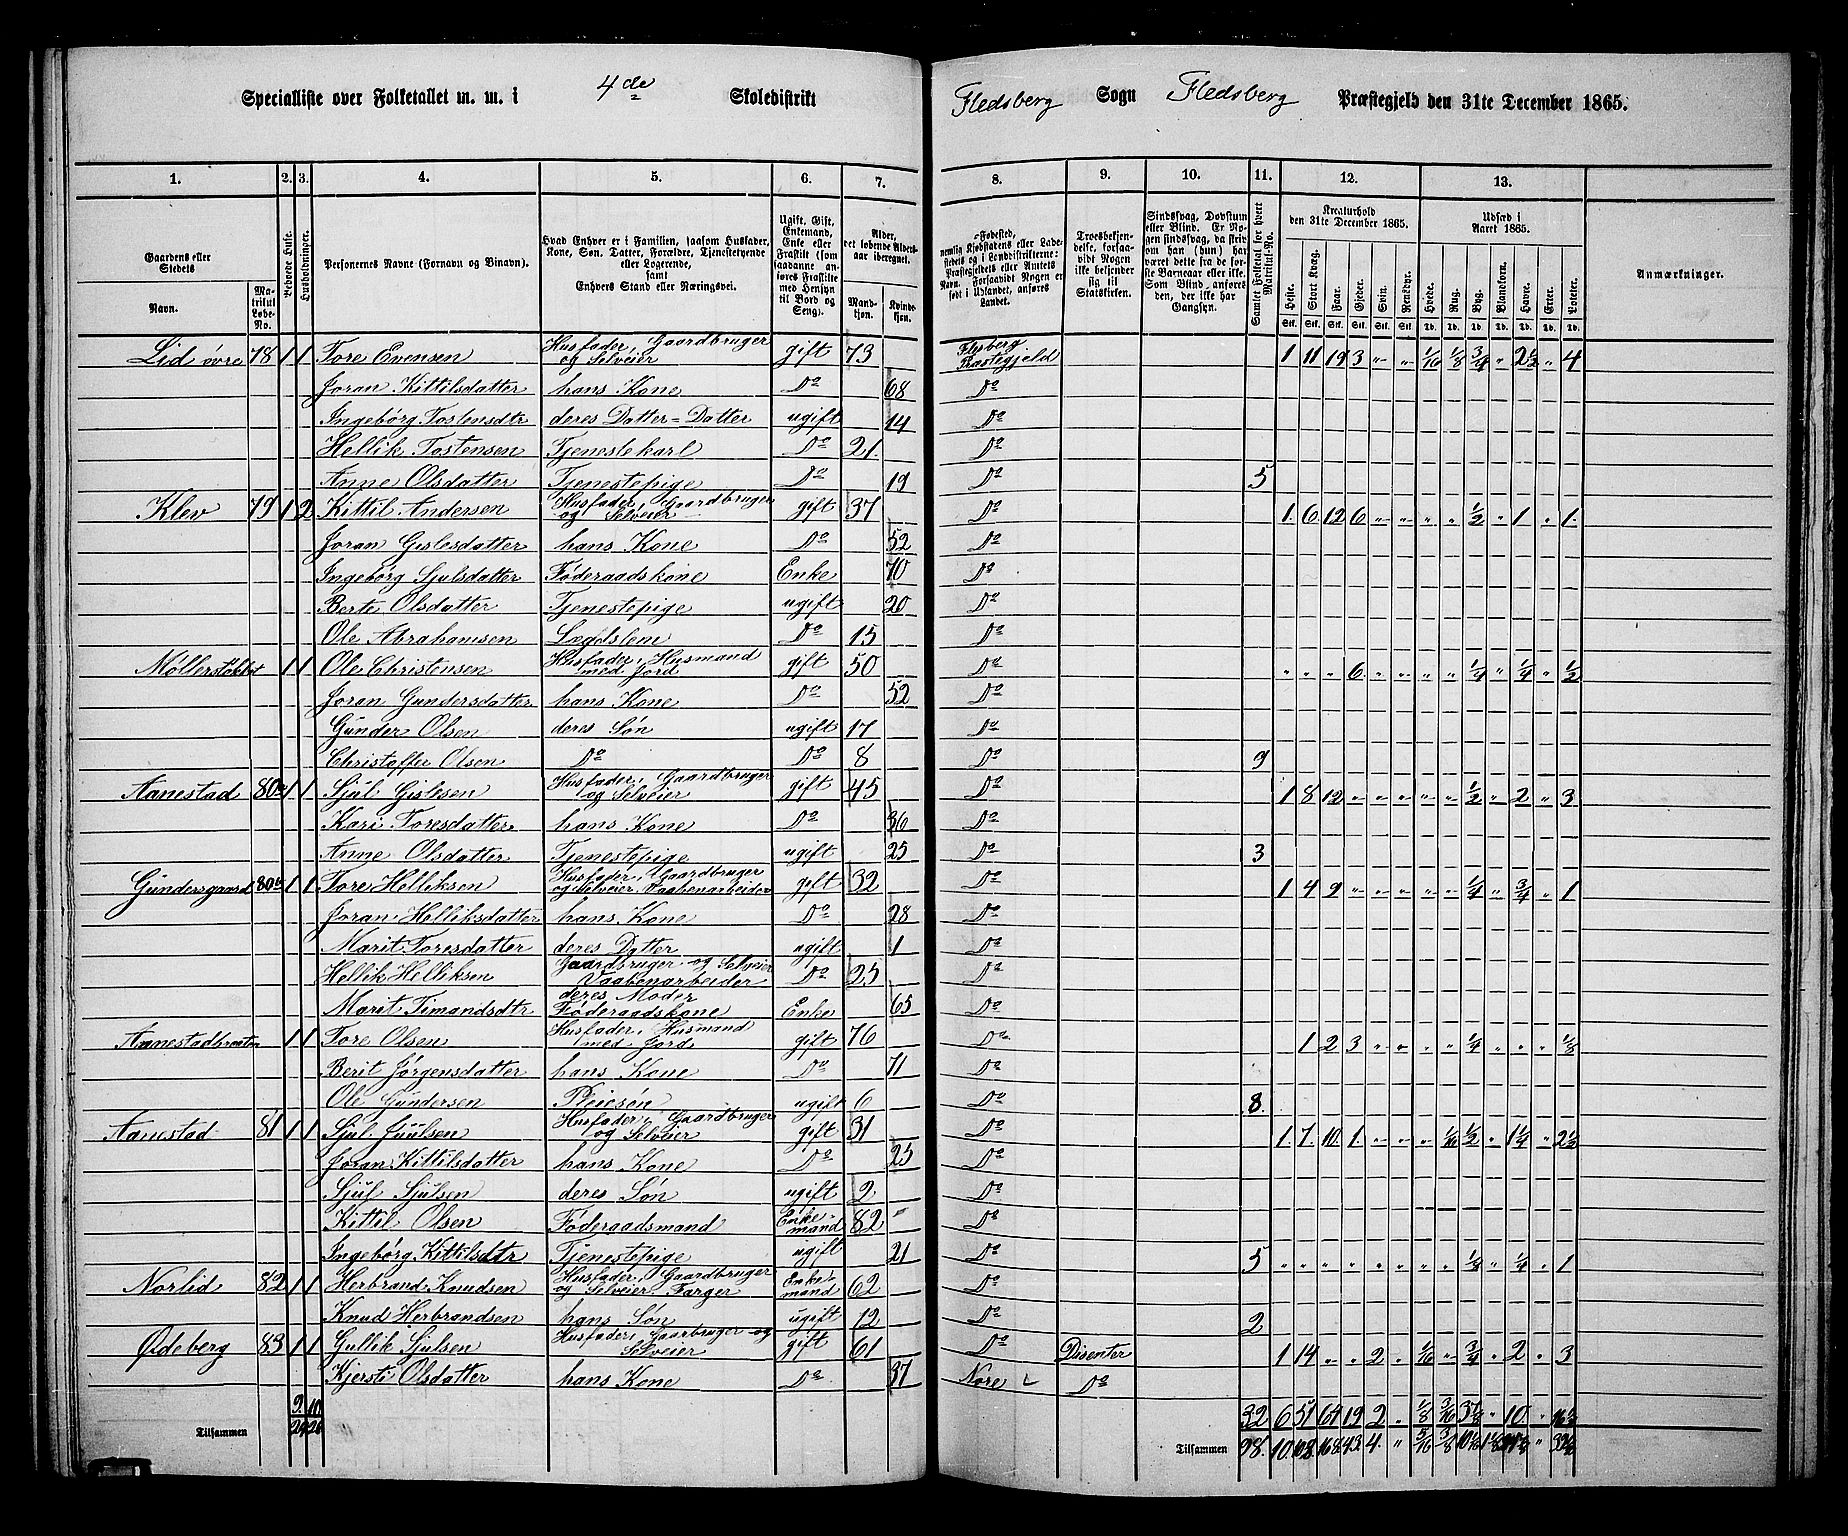 Specialliste over Folketallet m. m. i 4de Skoledistrikt Flesberg Sogn Flesberg Præstegjeld den 31te December 1865.
1. 2. 3. 4. 5. 6. 7. 8. 9. 10. 11. 12. 13.
Gaardens eller Stedets
Navn. Matrikul Løbe-No.
Beboede Huse.
Husholdninger.
Personernes Navne (Fornavn og Binavn).
Hvad Enhver er i Familien, saasom Husfader, Kone, Søn, Datter, Forældre, Tjenestetyende eller Logerende, samt Enhvers Stand eller Næringsvei.
Ugift, Gift, Enkemand, Enke eller Fraskilt (som saadanne anføres Fraskilte med Hensyn til Bord og Seng).
Alder, det løbende Aldersaar iberegnet.
Mandkjøn. Kvindekjøn.
Fødested, nemlig Kjøbstadens eller Ladestedets og i Landdistrikterne: Præstegjeldets eller Amtets Navn. Forsaavidt Nogen er født i Udlandet, anføres Landet.
Troesbekjendelse, forsaavidt Nogen ikke bekjender sig til Statskirken.
Sindssvag, Døvstum eller Blind. Er Nogen sindssvag, da hvis han (hun) har været dette fra de første Barneaar eller ikke. Som Blind anføres den, der ikke har Gangsyn.
Samlet Folketal for hvert Matrikul-No.
Kreaturhold den 31te December 1865.
Heste. Stort Kvæg. Faar. Gjeder. Svin. Rensdyr.
Stk. Stk. Stk. Stk. Stk. Stk.
Udsæd i Aaret 1865.
Hvede. Rug. Byg. Blandkorn. Havre. Erter. Poteter.
Td. Td. Td. Td. Td. Td. Td.
Anmærkninger.
Lid øvre 78 1 1 Tore Evensen Husfader, Gaardbruger og Selveier gift 73 Flesberg Præstegjeld 1 11 19 3 " " 1/16 1/8 3/4 " 2 1/2 " 4
Joran Kittilsdatter hans Kone Do 68 Do
Ingebórg Tostensdtr deres Datter=Datter ugift 14 Do
Hellik Tostensen Tjenestekarl Do 21. Do
Anne Olsdatter Tjenestepige Do 19 Do 5
Klev 79 1 2 Kittil Andersen Husfader, Gaardbruger og Selveier gift 37 Do 1. 6. 12 6 " " " " 1/2 " 1 " 1.
Joran Gislesdatter hans Kone Do 52 Do
Ingebórg Sjulsdatter Føderaadskone Enke 70 Do
Berte Olsdatter Tjenestepige ugift 20 Do
Ole Abrahamsen Lægdslem Do 15 Do
Møllerstøkket 1 1 Ole Christensen Husfader, Husmand med Jord gift 50 Do " " " 6 " " " " 1/4 " 1/4 " 1/2
Joran Gundersdatter hans Kone Do 52 Do
Gunder Olsen deres Søn ugift 17 Do
Christoffer Olsen Do Do 8 Do 9
Aanestad 80a 1 1 Sjul Gislesen Husfader, Gaardbruger og Selveier gift 45 Do 1 8 12 " " " " " 1/2 " 2 " 3
Kari Toresdatter hans Kone Do 36 Do
Anne Olsdatter Tjenestepige ugift 25 Do 3
Gundersgaard 80b 1 1 Tore Helliksen Husfader, Gaardbruger og Selveier, Vaabenarbeider gift 32 Do 1 4 9 " " " " " 1/4 " 3/4 " 1
Joran Helliksdatter hans Kone Do 28 Do
Marit Toresdatter deres Datter ugift 1 Do
Hellik Helliksen Gaardbruger og Selveier Vaabenarbeider Do 25 Do
Marit Timandsdtr deres Moder Føderaadskone Enke 65 Do
Aanestadbraaten 1 1 Tore Olsen Husfader, Husmand med Jord gift 76 Do 1 2 3 " " " " 1/4 " " " 1/8
Berit Jørgensdatter hans Kone Do 71 Do
Ole Gundersen Pleiesøn ugift 6 Do 8.
Aanestad 81 1 1 Sjul Juulsen Husfader, Gaardbruger og Selveier gift 31 Do 1. 7. 10. 1. " " " 1/16 1/2 " 1 1/4 " 2 1/2
Joran Kittilsdatter hans Kone Do 25 Do
Sjul Sjulsen deres Søn ugift 2 Do
Kittil Olsen Føderaadsmand Enkemand 82 Do
Ingebórg Kittilsdtr Tjenestepige ugift 21 Do 5
Norlid 82 1 1 Herbrand Knudsen Husfader, Gaardbruger og Selveier Farger Enkemand 62 Do " " " " " " " " 1/4 " 1/4 " 1
Knud Herbrandsen hans Søn ugift 12 Do 2
Ødeberg 83 1 1 Gullik Sjulsen Husfader, Gaarbruger og Selveier gift 61 Do Disenter 1 14 " " 2 " 1/16 " 3/4 " 2 " 3
Kjersti Olsdatter hans Kone Do 37 Nore Do
9. 10. 32 6 51 64 19 2 " 1/8 3/16 " 10. "
Tilsammen Tilsammen 98. 10. 108 168 43 4. " 5/16 3/8 "